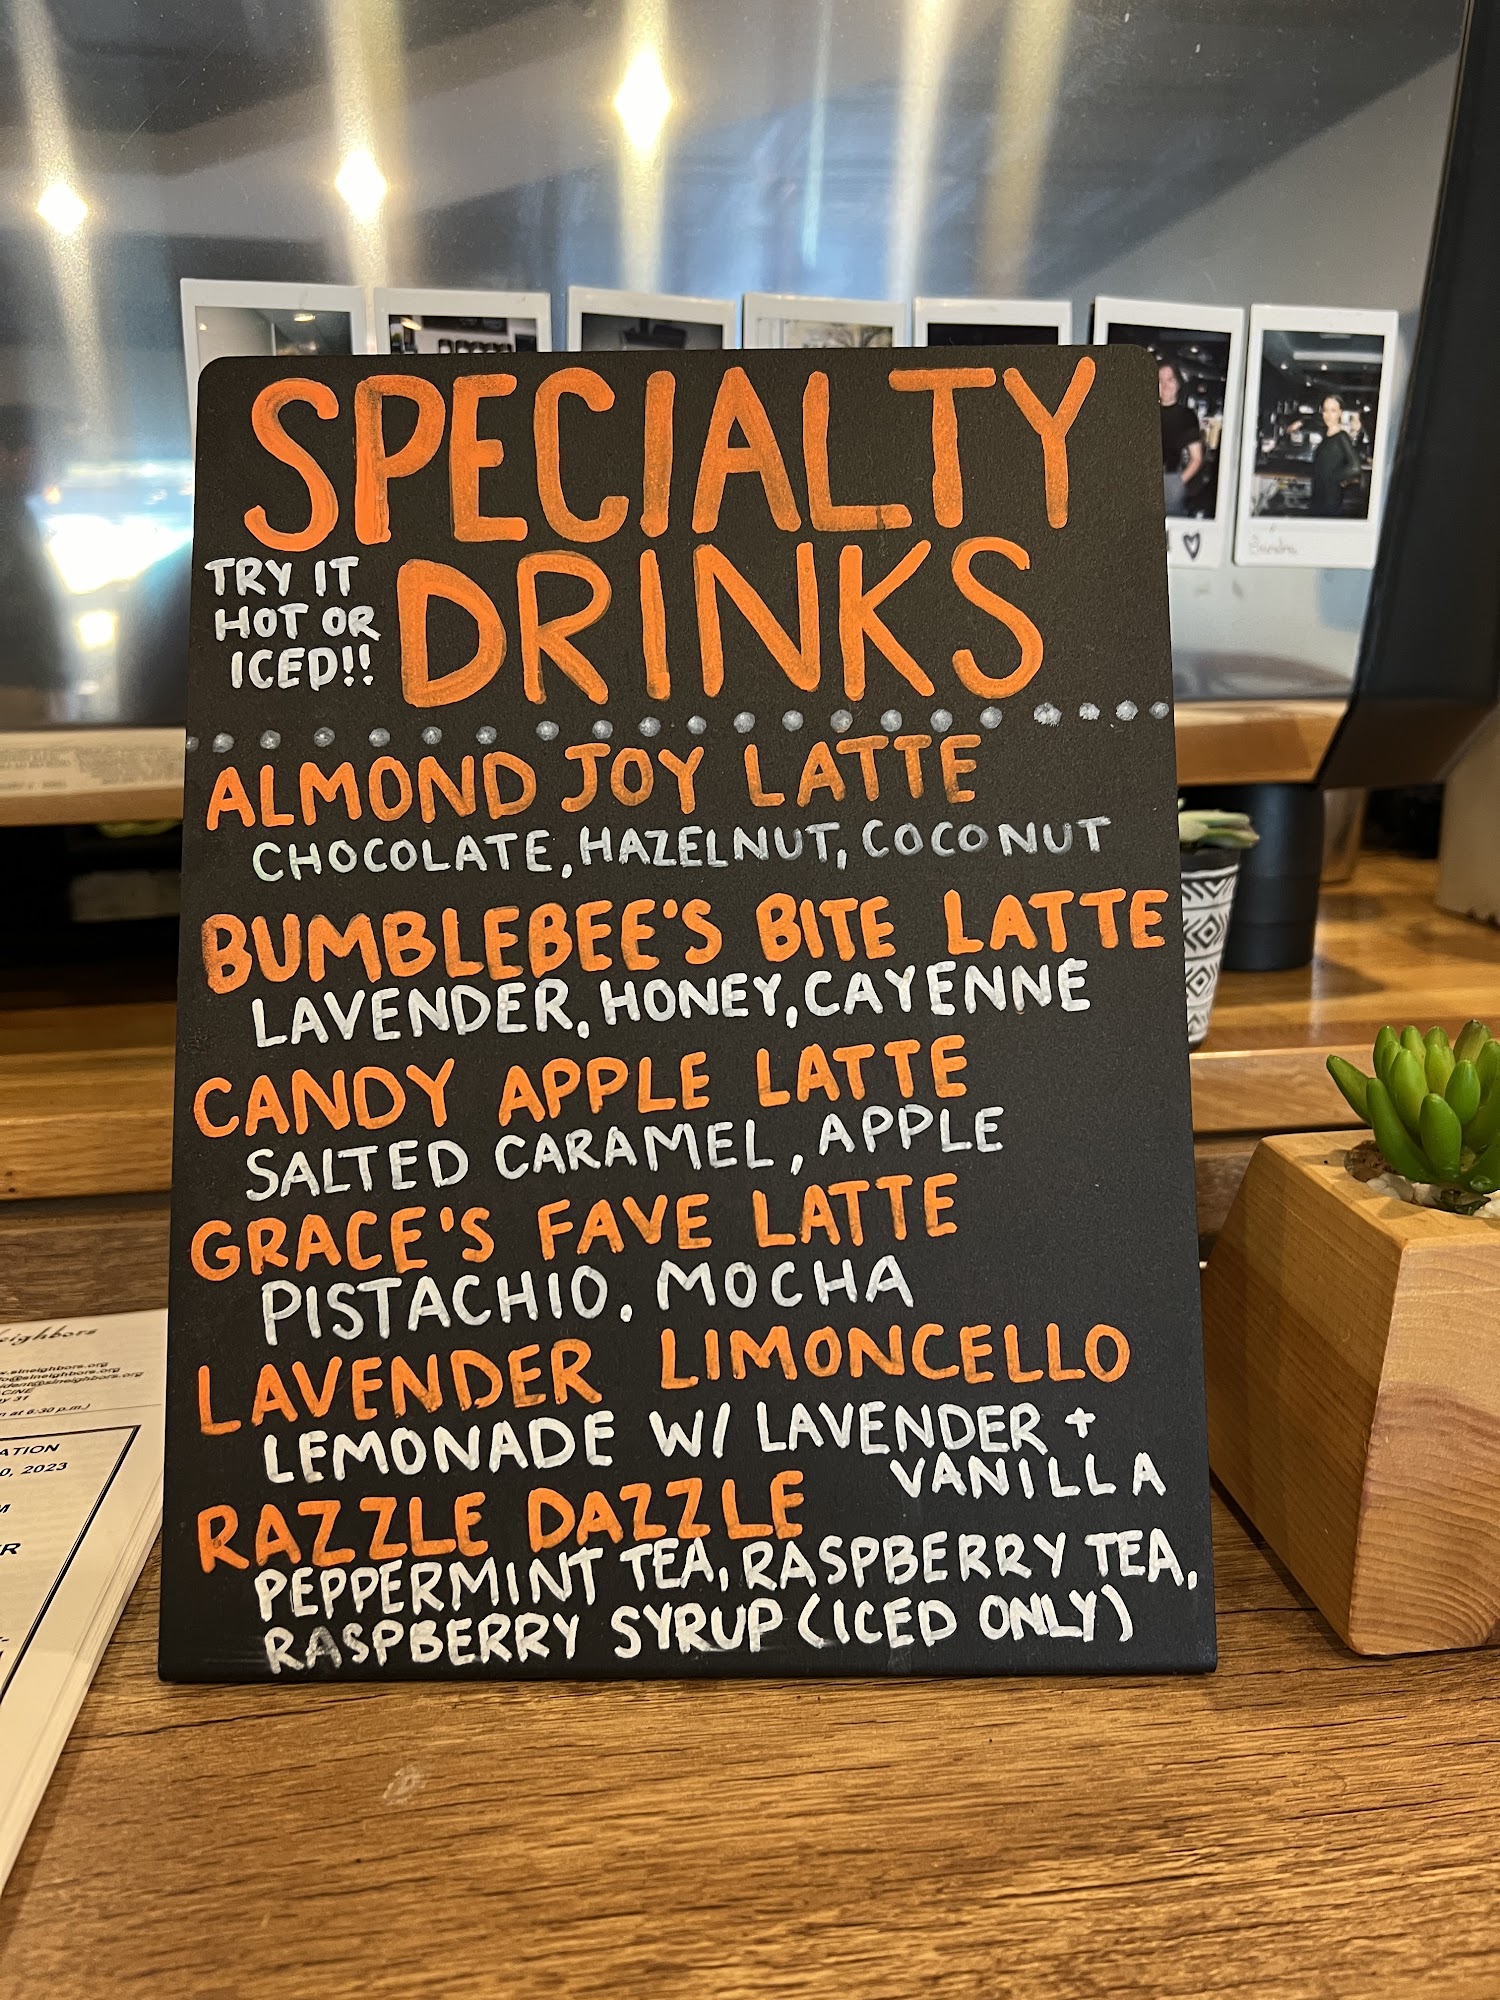 SPECIALTY
DRINKS
TRY IT
HOT OR
ICED!!
ALMOND JOY LATTE
CHOCOLATE, HAZELNUT, COCONUT
BUMBLEBEE'S BITE LATTE
LAVENDER, HONEY, CAYENNE
CANDY APPLE LATTE
SALTED CARAMEL, APPLE
GRACE'S FAVE LATTE
PISTACHIO, MOCHA
LAVENDER LIMONCELLO
LEMONADE W/ LAVENDER +
VANILLA
RAZZLE DAZZLE
PEPPERMINT TEA, RASPBERRY TEA,
RASPBERRY SYRUP (ICED ONLY)
eighbors
.slneighbors.org
@slneighbors.org
ident@slneighbors.org
CINE
y 31
at 6:30 p.m.)
ATION
0, 2023
M
R